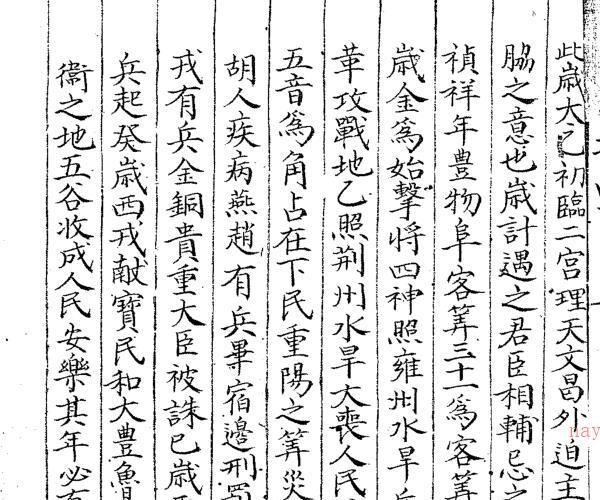 此歲太乙初臨二宮理天文昌外迫主
脇之意也歲計遇之君臣相輔忌
禎祥年豊物阜客筭三十一爲客筭
歲金爲始擊將四神照雍州水旱兵
革攻戰地乙照荆州水旱大喪人民
五音爲角占在下民重陽之筭災
胡人疾病燕趙有兵畢宿邊刑
戎有兵金銅貴重大臣被誅巳歲
兵起癸歲西戎献寶民和大豊魯
衞之地五谷收成人民安樂其年必有
nay